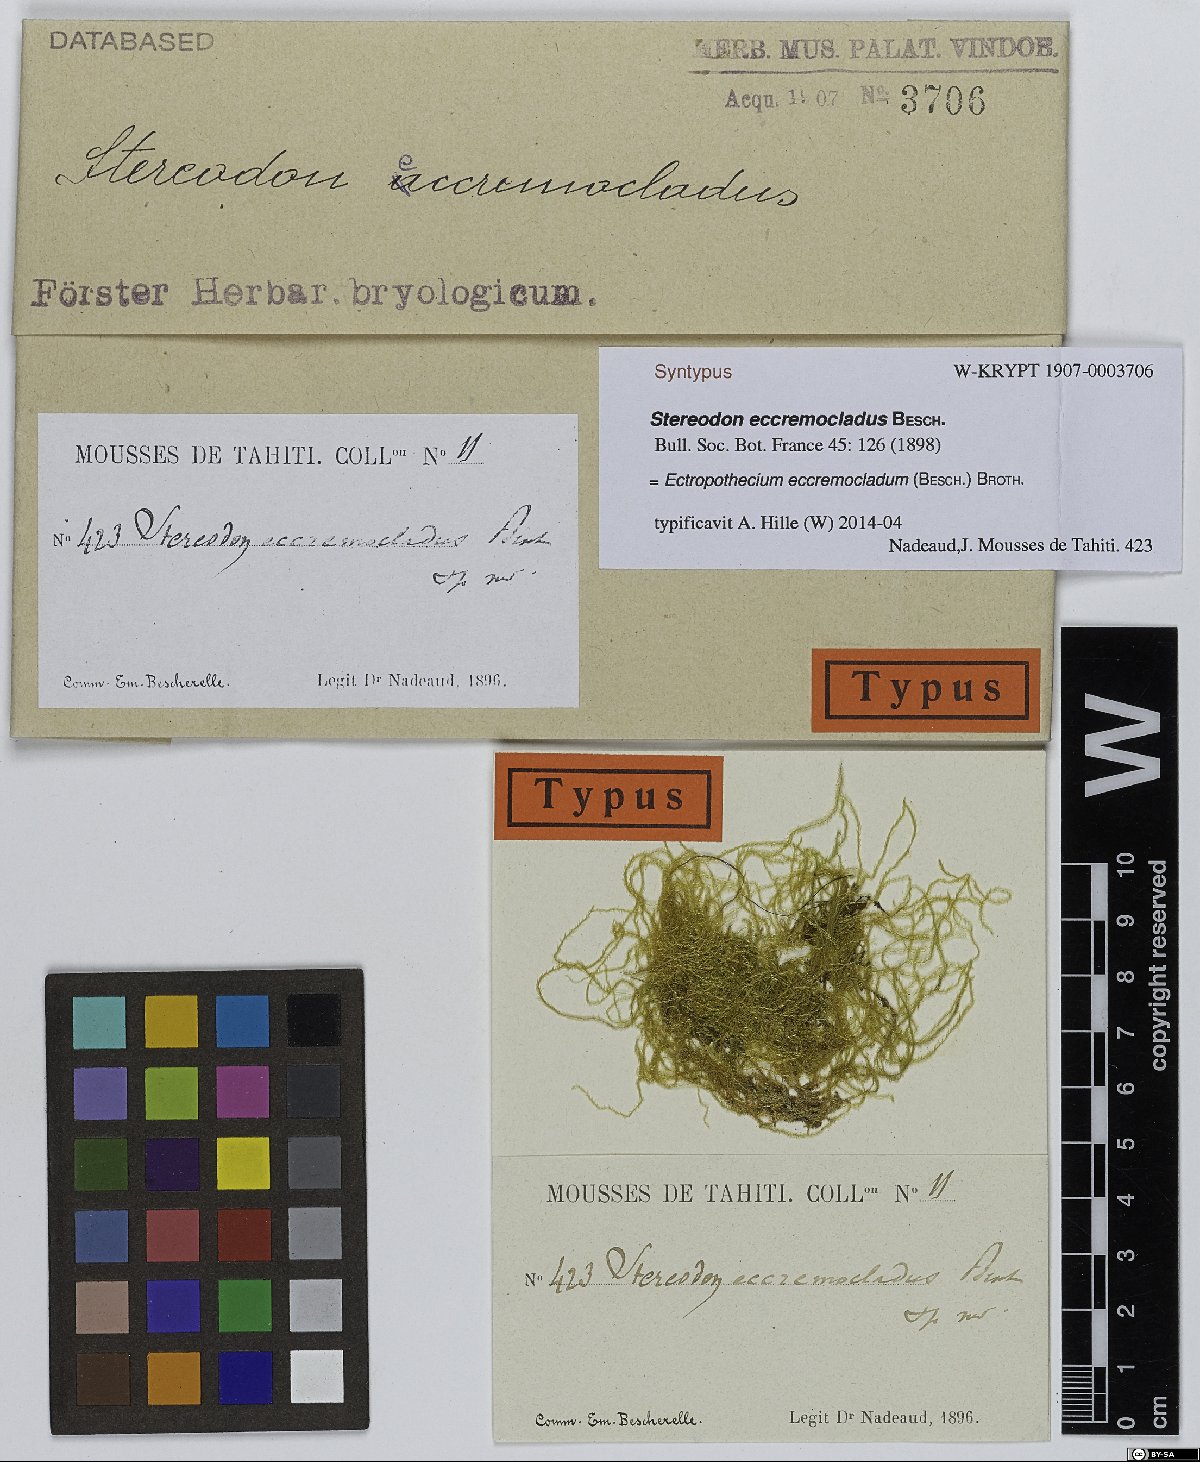 DATABASED
HERB. MUS. PALAT. VINDOB.
Acqu. 1907 No 3706
Stereodon eccremocladus
Förster Herbar. bryologicum.
Syntypus W-KRYPT 1907-0003706
Stereodon eccremocladus BESCH.
Bull. Soc. Bot. France 45: 126 (1898)
= Ectropothecium eccremocladum (BESCH.) BROTH.
typificavit A. Hille (W) 2014-04
Nadeaud,J. Mousses de Tahiti. 423
MOUSSES DE TAHITI. COLLon No 11
No 423 Stereodon eccremocladus Besch
sp. nov.
Comm. Em. Bescherelle. Legit Dr Nadeaud, 1896.
Typus
Typus
MOUSSES DE TAHITI. COLLon No 11
No 423 Stereodon eccremocladus Besch
sp. nov.
Comm. Em. Bescherelle. Legit Dr Nadeaud, 1896.
W
copyright reserved
10
9
8
7
6
5
4
3
2
1
0
cm
cc BY-SA